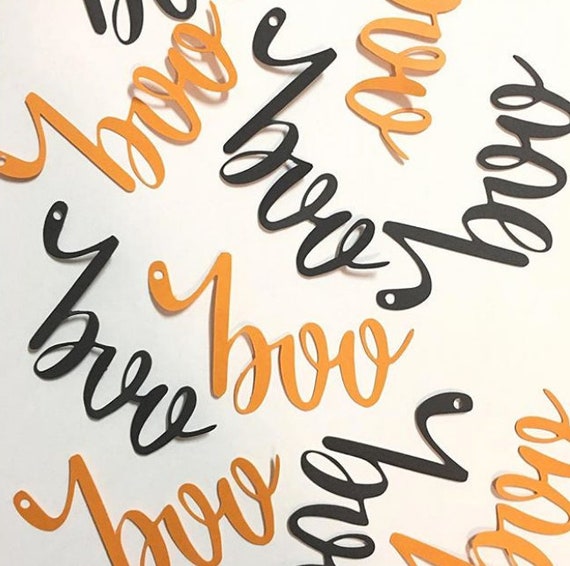 boo
boo
boo
boo
boo
boo
boo
boo
boo
boo